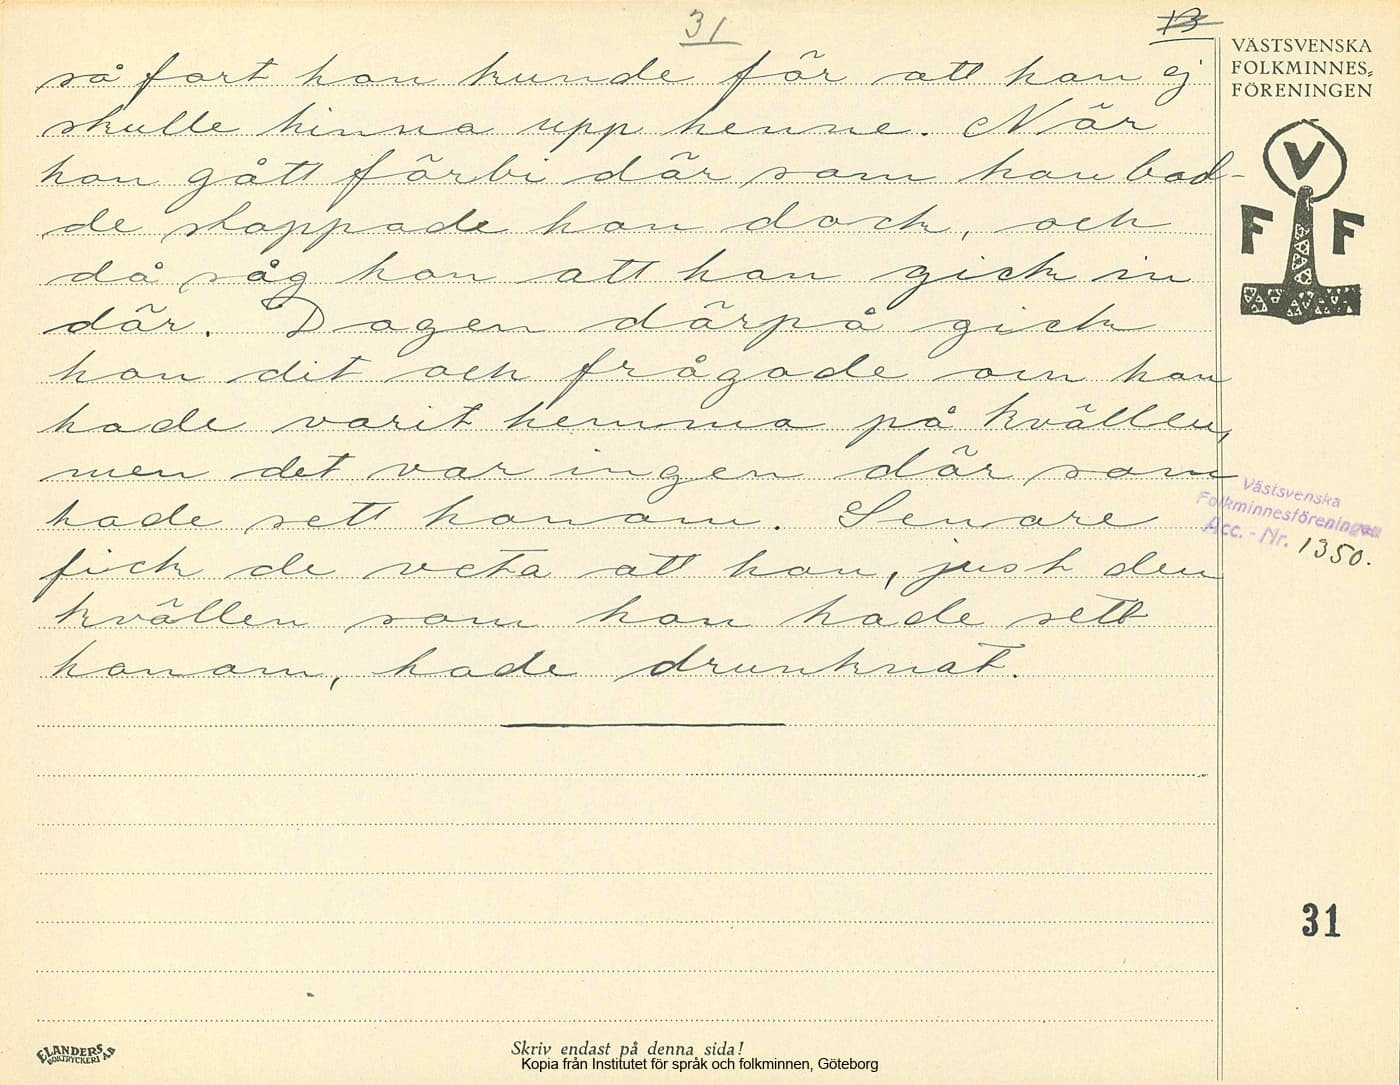 31
13
så fort hon kunde för att han ej
skulle hinna upp henne. När
hon gått förbi där som han bod-
de stoppade hon dock, och
då såg hon att han gick in
där. Dagen därpå gick
hon dit och frågade om han
hade varit hemma på kvällen,
men det var ingen där som
hade sett honom. Senare
fick de veta att han, just den
kvällen som hon hade sett
honom, hade drunknat.
VÄSTSVENSKA
FOLKMINNES-
FÖRENINGEN
V
F F
Västsvenska
Folkminnesföreningen
Acc. - Nr. 1350.
31
ELANDERS
BOKTRYCKERI A.B
Skriv endast på denna sida!
Kopia från Institutet för språk och folkminnen, Göteborg